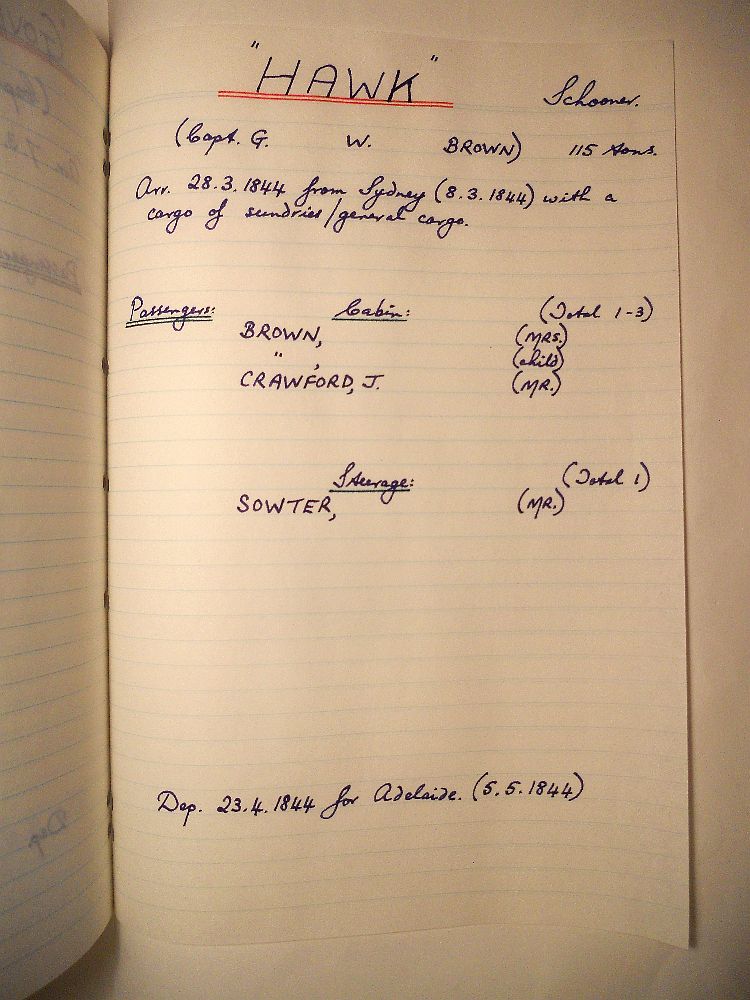 "HAWK"
Schooner.
(Capt. G. W. BROWN) 115 tons.
Arr. 28.3.1844 from Sydney (8.3.1844) with a
cargo of sundries/general cargo.
Passengers: Cabin: (Total 1-3)
BROWN, (MRS.)
" , (child)
CRAWFORD, J. (MR.)
Steerage: (Total 1)
SOWTER, (MR.)
Dep. 23.4.1844 for Adelaide. (5.5.1844)